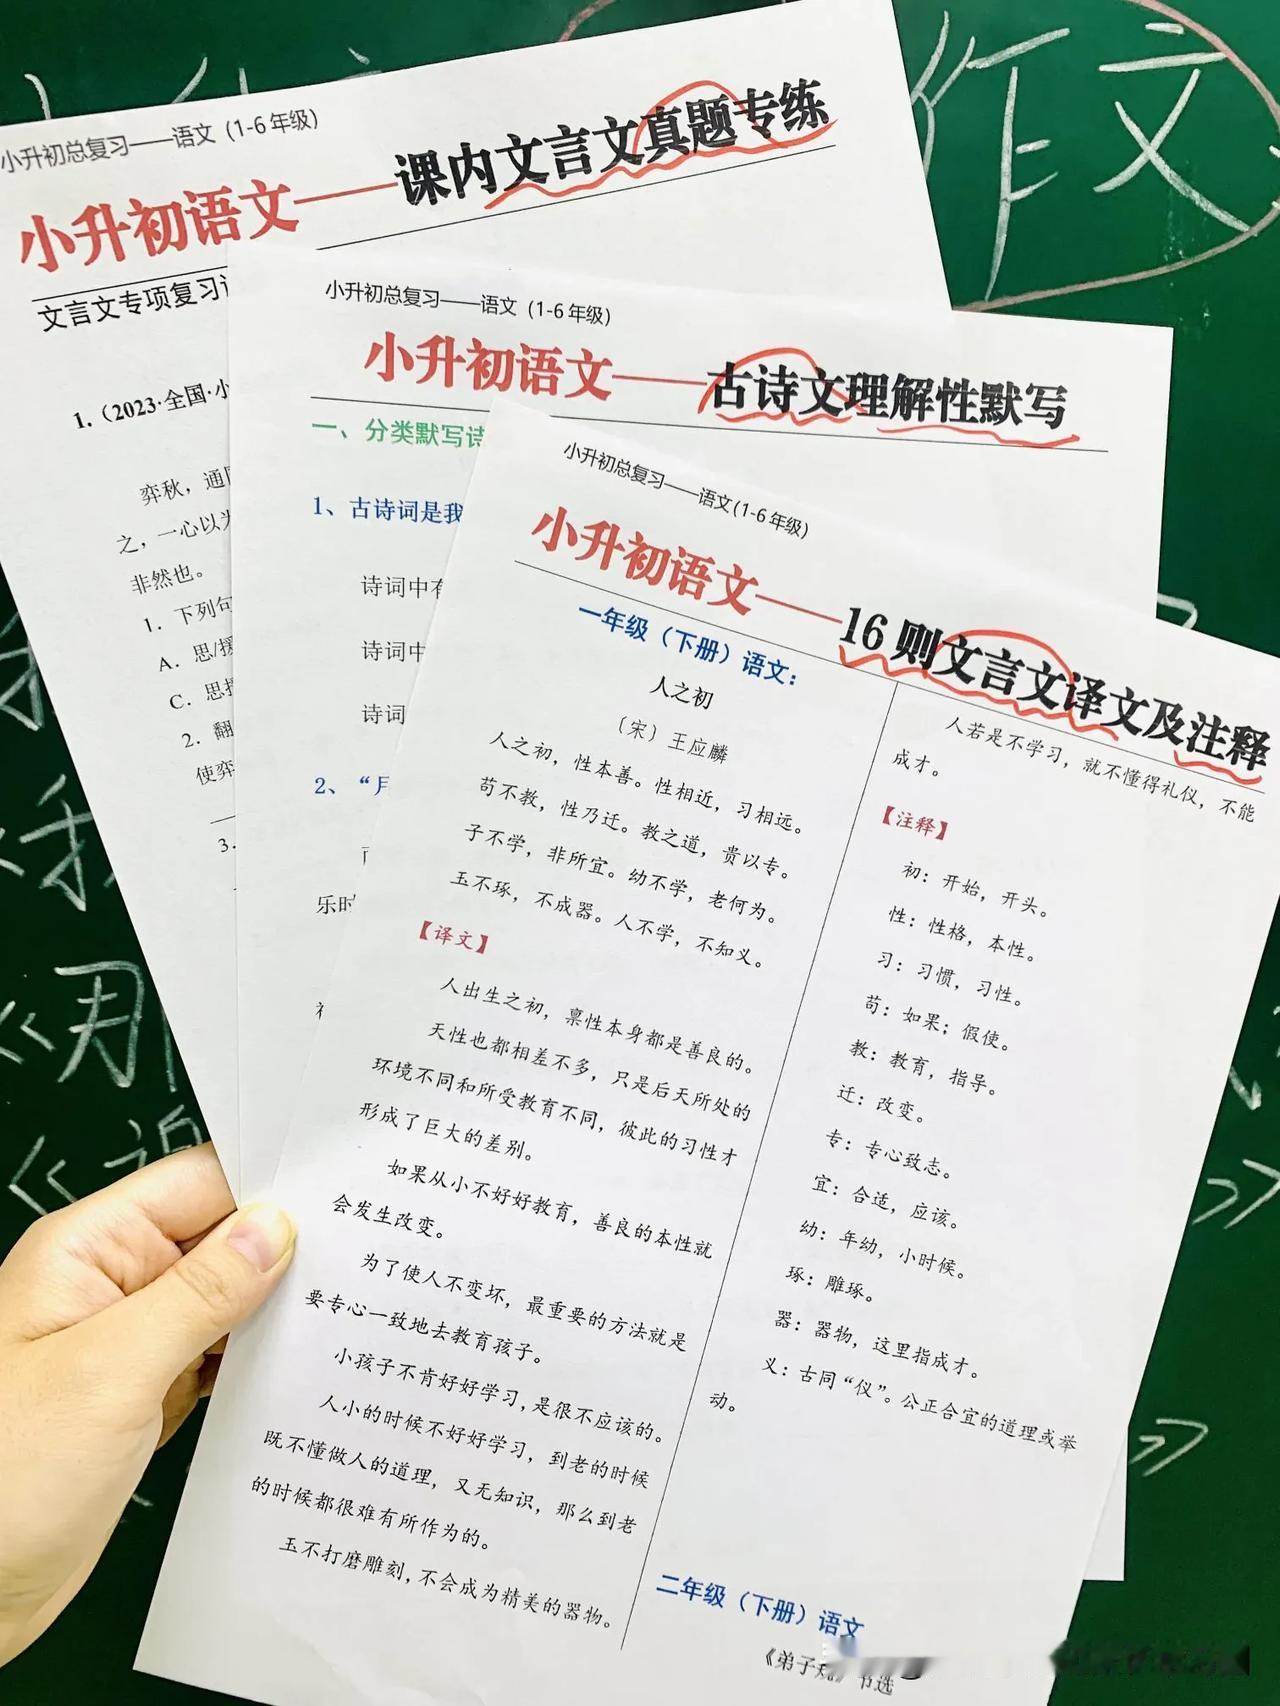 作文
小升初总复习——语文 (1-6年级)
小升初语文——课内文言文真题专练
文言文专项复习
1.（2023·全国·小
弈秋，通
之，一心以为
非然也。
1. 下列
A. 思/援
C. 思援
2. 翻
使弈
3.
小升初总复习——语文 (1-6年级)
小升初语文——古诗文理解性默写
一、分类默写诗
1、古诗词是我
诗词中有
诗词中
诗词
2、“月
乐时
小升初总复习——语文(1-6年级)
小升初语文——16则文言文译文及注释
一年级（下册）语文：
人之初
〔宋〕王应麟
人之初，性本善。性相近，习相远。
苟不教，性乃迁。教之道，贵以专。
子不学，非所宜。幼不学，老何为。
玉不琢，不成器。人不学，不知义。
【译文】
人出生之初，禀性本身都是善良的。
天性也都相差不多，只是后天所处的
环境不同和所受教育不同，彼此的习性才
形成了巨大的差别。
如果从小不好好教育，善良的本性就
会发生改变。
为了使人不变坏，最重要的方法就是
要专心一致地去教育孩子。
小孩子不肯好好学习，是很不应该的。
人小的时候不好好学习，到老的时候
既不懂做人的道理，又无知识，那么到老
的时候都很难有所作为的。
玉不打磨雕刻，不会成为精美的器物。
人若是不学习，就不懂得礼仪，不能
成才。
【注释】
初：开始，开头。
性：性格，本性。
习：习惯，习性。
苟：如果；假使。
教：教育，指导。
迁：改变。
专：专心致志。
宜：合适，应该。
幼：年幼，小时候。
琢：雕琢。
器：器物，这里指成才。
义：古同“仪”。公正合宜的道理或举
动。
二年级（下册）语文
《弟子规》节选
《用